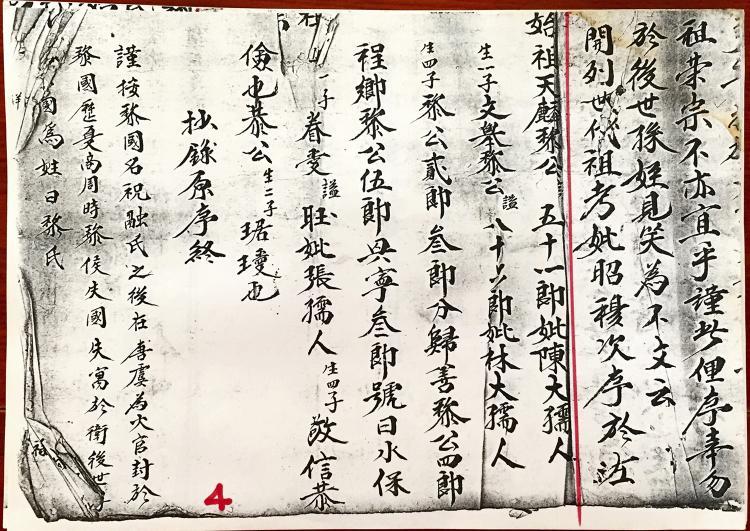 祖荣宗不亦宜乎謹此俚序幸勿
於後世孫姪見笑為不文云
開列世代祖考妣昭穆次序於
始祖天麟黎公 五十一郎妣陳大孺人
生一子文舉黎公 謚 八十六郎妣林大孺人
生四子黎公貳郎叁郎分歸善黎公四郎
程鄉黎公伍郎興寧叁郎號曰水保
一子眷雯 謚 旺妣張孺人 生四子 敬信恭
儉也恭公 生二子 琚 瓊也
抄錄原序終
謹按黎國名祝融氏之後在唐虞為火官封於
黎國歷夏商周時黎侯失國失寓於衛後世
國為姓曰黎氏
4